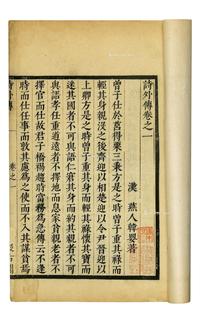 詩外傳卷之一
漢 燕人韓嬰著
曾子仕於莒得粟三秉方是之時曾子重其祿而
輕其身親沒之後齊迎以相楚迎以令尹晉迎以
上卿方是之時曾子重其身而輕其祿懷其寶而
迷其國者不可與語仁窘其身而約其親者不可
與語孝任重道遠者不擇地而息家貧親老者不
擇官而仕故君子橋褐趨時當務為急傳云不逢
時而仕任事而敦其慮為之使而不入其謀貧焉